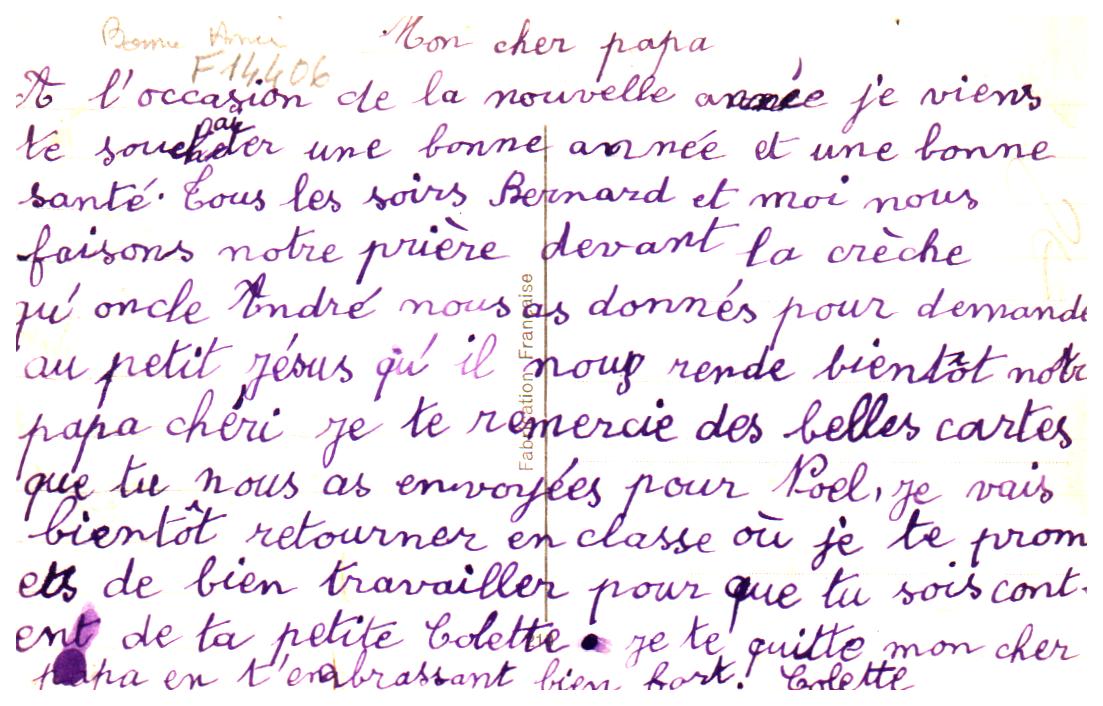 Bonne Année
Mon cher papa
F14406
A l'occasion de la nouvelle année je viens
te souhaiter une bonne année et une bonne
santé. Tous les soirs Bernard et moi nous
faisons notre prière devant la crèche
qu'oncle André nous as donnés pour demande
au petit jésus qu'il nous rende bientôt notr
papa chéri je te remercie des belles cartes
que tu nous as envoyées pour Noel, je vais
bientôt retourner en classe où je te prom
ets de bien travailler pour que tu sois cont-
ent de ta petite Colette. je te quitte mon cher
papa en t'embrassant bien fort. Colette
Fabrication Française